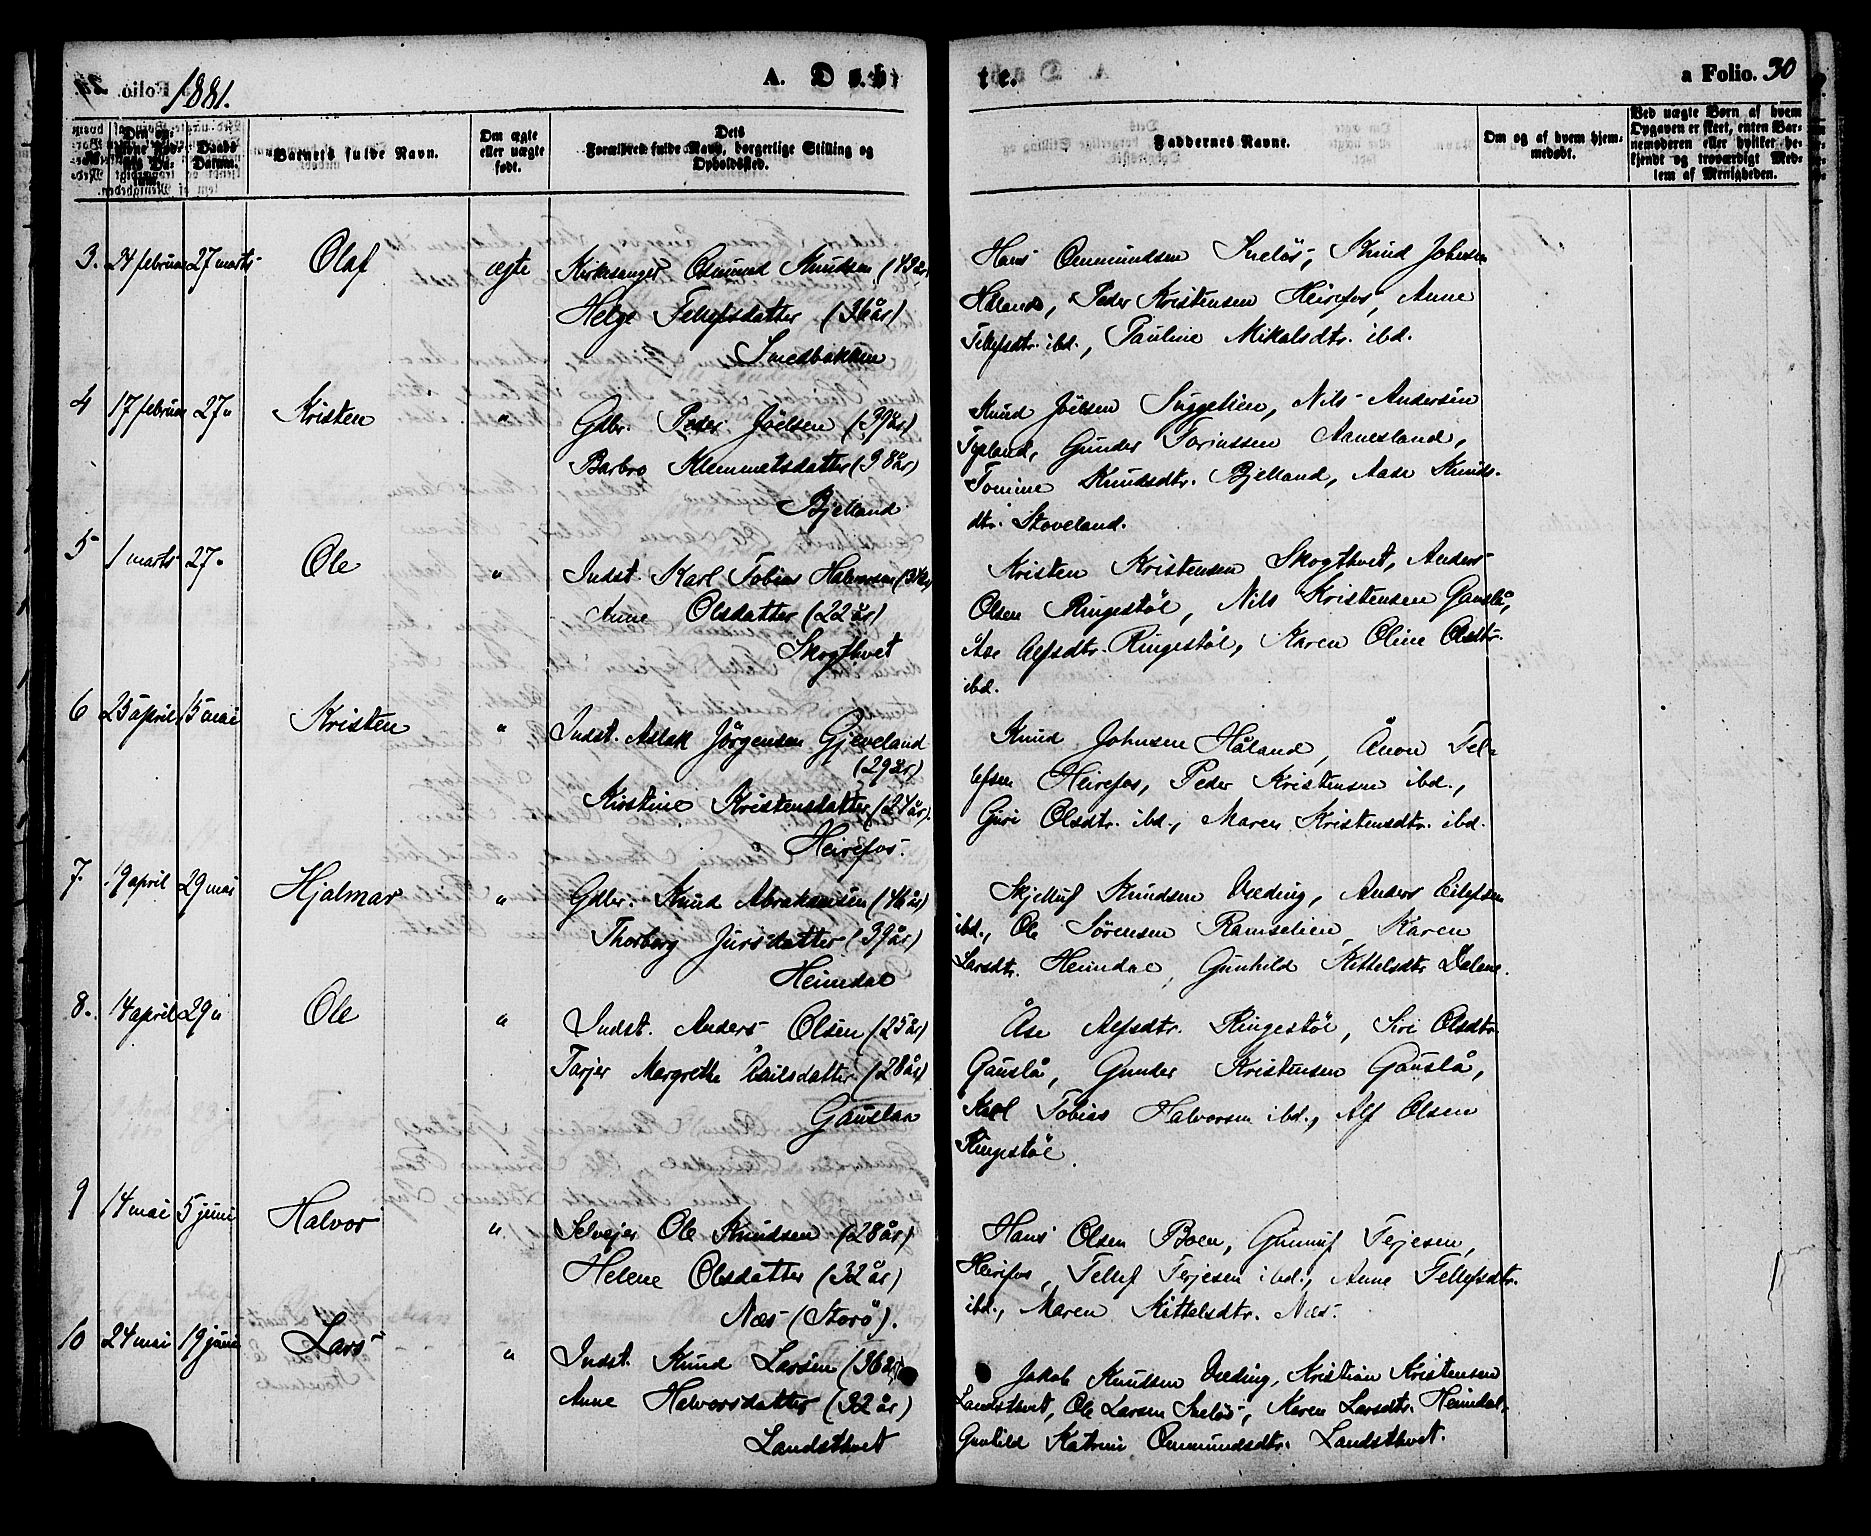 1881.
A. Døbte.
a Folio. 30
Barnets fulde Navn.
Om ægte
eller uægte
født.
Dets
Forældres fulde Navn, borgerlige Stilling og
Opholdssted.
Faddernes Navne.
Om og af hvem hjem-
medøbt.
Ved uægte Born af hvem
Opgaven er skeet, enten Bar-
nemoderen eller hvilket be-
kjendt og troværdigt Med-
lem af Menigheden.
3. 24 februar 27 marts Olaf ægte Kirkesanger Osmund Knudsen (43 år)
Helge Tellefsdatter (36 år)
Smedbakken
Hans Osmundsen Snelös, Knud Johnsen
Håland, Peder Kristensen Heirefos, Anne
Tellefsdtr. ibd., Pauline Mikalsdtr. ibd.
4 17 februar 27 " Kristen " Gdbr. Peder Jöelsen (39 år)
Barbro Klemmetsdatter (38 år)
Bjelland
Knud Jöelsen Suggelien, Nils Andersen
Typland, Gunder Torinssen Aanesland,
Tomine Knudsdtr. Bjelland, Aase Knuds-
dtr. Stoveland.
5 1 marts 27 " Ole " Indst. Karl Tobias Halvorsen (34 år)
Anne Olsdatter (22 år)
Skogthvet
Kristen Kristensen Skogthvet, Anders
Olsen Ringestöl, Nils Kristensen Gauslå,
Åse Alfsdtr. Ringestöl, Karen Oline Olsdtr.
ibd.
6 25 april 15 mai Kristen " Indst. Aslak Jörgensen Gjeveland
(29 år)
Kirstine Kristensdatter (24 år).
Heirefos.
Knud Johnsen Håland, Ånon Tel-
lefsen Heirefos, Peder Kristensen ibd.,
Guri Olsdtr. ibd., Maren Kristensdtr. ibd.
7. 19 april 29 mai Hjalmar " Gdbr. Knud Abrahamsen (46 år)
Thorborg Jursdatter (39 år)
Heimdal
Skjelluf Knudsen Væding, Anders Eilefsen
ibd., Ole Sörensen Ramselien, Karen
Larsdtr. Heimdal, Gunhild Kittelsdtr. Dalene.
8. 14 april 29 " Ole " Indst. Anders Olsen (25 år)
Tarjer Margrethe Nilsdatter (28 år)
Gauslaa
Åse Alfsdtr. Ringestöl, Siri Olsdtr.
Gauslå, Gunder Kristensen Gauslå,
Karl Tobias Halvorsen ibd., Alf Olsen
Ringestöl.
9 14 mai 5 juni Halvor " Selvejer Ole Knudsen (28 år)
Helene Olsdatter (32 år)
Næs (Storö).
Hans Olsen Boen, Gunnuf Terjesen,
Heirefos, Tellef Terjesen ibd., Anne Tellefsdtr.
ibd., Maren Kittelsdtr. Næs.
10 24 mai 19 juni Lars " Indst. Knud Larsen (36 år)
Anne Halvorsdatter (32 år)
Landsthvet
Jakob Knudsen Væding, Kristian Kristensen
Landsthvet, Ole Larsen Snelös, Karen Larsdtr. Heimdal,
Gunhild Katrine Osmundsdtr. Landsthvet.